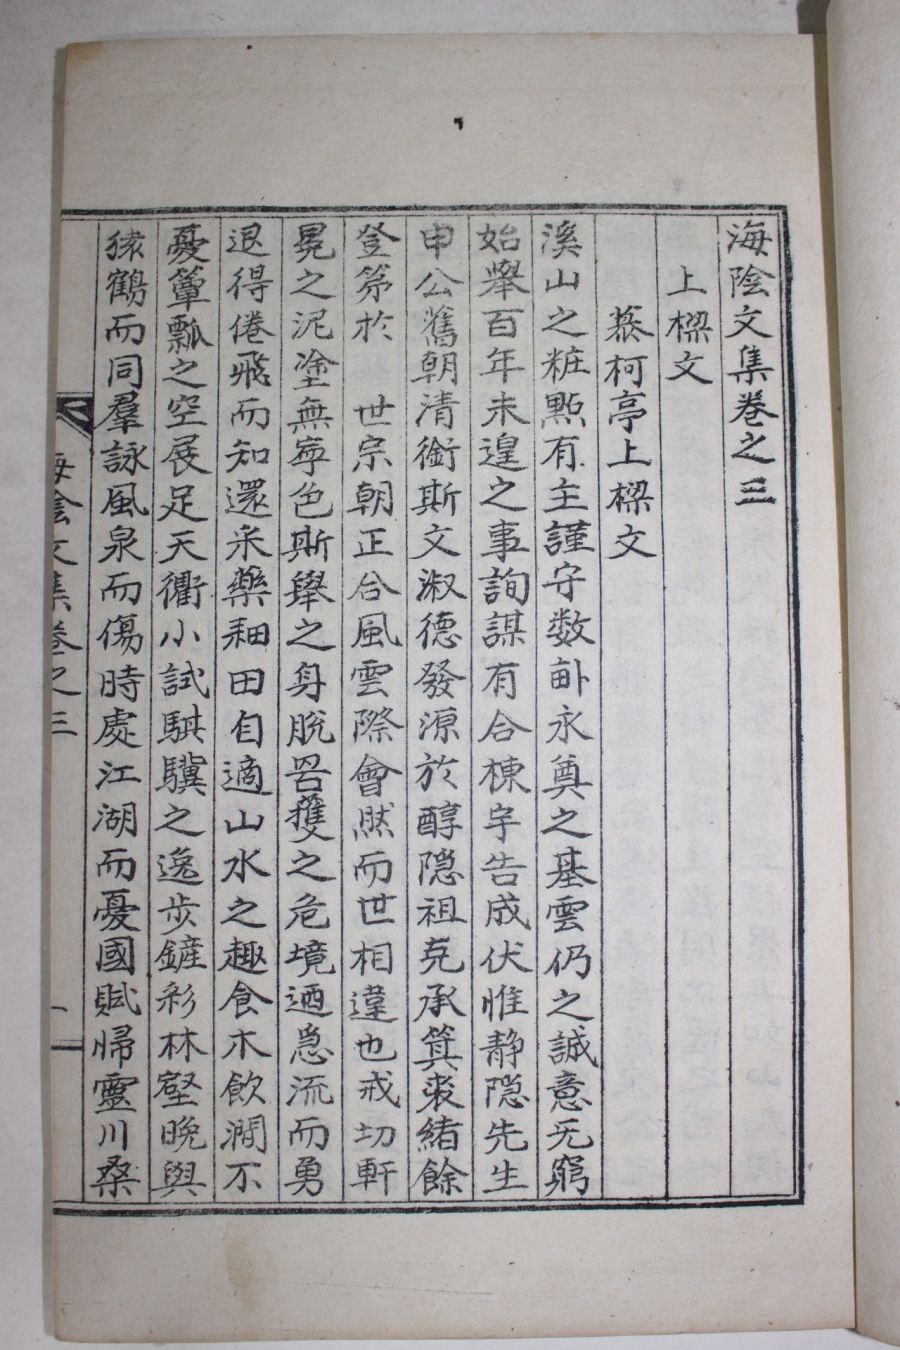 海陰文集卷之三
上樑文
慕柯亭上樑文
溪山之粧點有主謹守数畝永奠之基雲仍之誠意无窮
始擧百年未遑之事詢謀有合棟宇告成伏惟静隱先生
申公舊朝清銜斯文淑德發源於醇隱祖克承箕裘緖餘
登第於 世宗朝正合風雲際會然而世相違也戒切軒
冕之泥塗無寧色斯擧之身脫罟擭之危境廼急流而勇
退得倦飛而知還采藥耘田自適山水之趣食木飮澗不
憂簞瓢之空展足天衢小試騏驥之逸步鏟彩林壑晩與
猿鶴而同羣詠風泉而傷時處江湖而憂國賦帰靈川桑
海陰文集卷之三 一